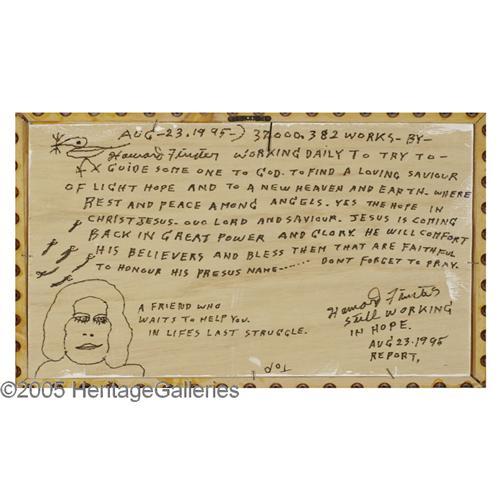 AUG-23.1995-) 37000.382 WORKS-BY-
Howard Finster WORKING DAILY TO TRY TO-
GUIDE SOME ONE TO GOD. TO FIND A LOVING SAVIOUR
OF LIGHT HOPE AND TO A NEW HEAVEN AND EARTH. WHERE
REST AND PEACE AMONG ANGELS. YES THE HOPE IN
CHRIST JESUS. OUO LORD AND SAVIOUR. JESUS IS COMING
BACK IN GREAT POWER AND GLORY. HE WILL COMFORT
HIS BELIEVERS AND BLESS THEM THAT ARE FAITHFUL
TO HONOUR HIS PRESUS NAME------ DONT FORGET TO PRAY.
A FRIEND WHO
WAITS TO HELP YOU.
IN LIFES LAST STRUGGLE.
Howard Finster
Still WORKING
IN HOPE.
AUG 23.1995
REPORT,
TOP
©2005 HeritageGalleries